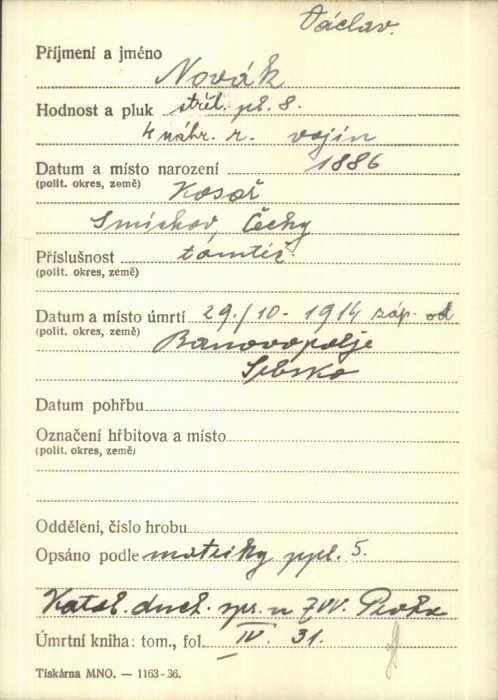 Václav.
Příjmení a jméno
Novák
Hodnost a pluk střel. pl. 8.
4 náhr. r. vojín
Datum a místo narození 1886
(polit. okres, země) Kosoř
Smíchov, Čechy
Příslušnost tamtéž
(polit. okres, země)
Datum a místo úmrtí 29./10. 1914 záp. od
(polit. okres, země) Banovopolje
Srbsko
Datum pohřbu
Označení hřbitova a místo
(polit. okres, země)
Oddělení, číslo hrobu
Opsáno podle matriky ppl. 5.
Katol. duch. spr. u ZVV. Praha
Úmrtní kniha: tom., fol. IV. 31.
Tiskárna MNO. — 1163-36.